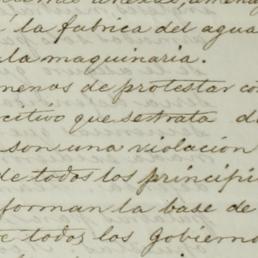 á la fabrica del agua
la maquinaria.
menos de protestar con
citivo que se trata de
son una violacion
de todos los principi
forman la base de
todos los Gobierno